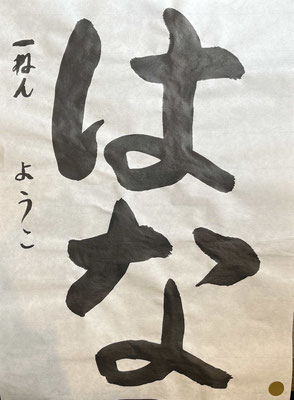 はな
一ねん ようこ